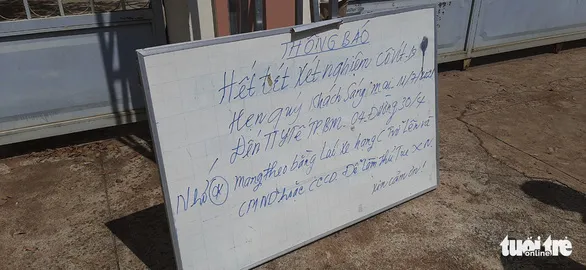 THÔNG BÁO
Hết test xét nghiệm COVID
Hẹn quý khách sáng mai
Đến TTYTế TP.BM. 04. Đường 30/4.
Nhớ * mang theo bằng lái xe hạng C trở lên và
CMND hoặc CCCD. Để làm thủ tục XN.
Xin cảm ơn!
tuổi trẻ
online